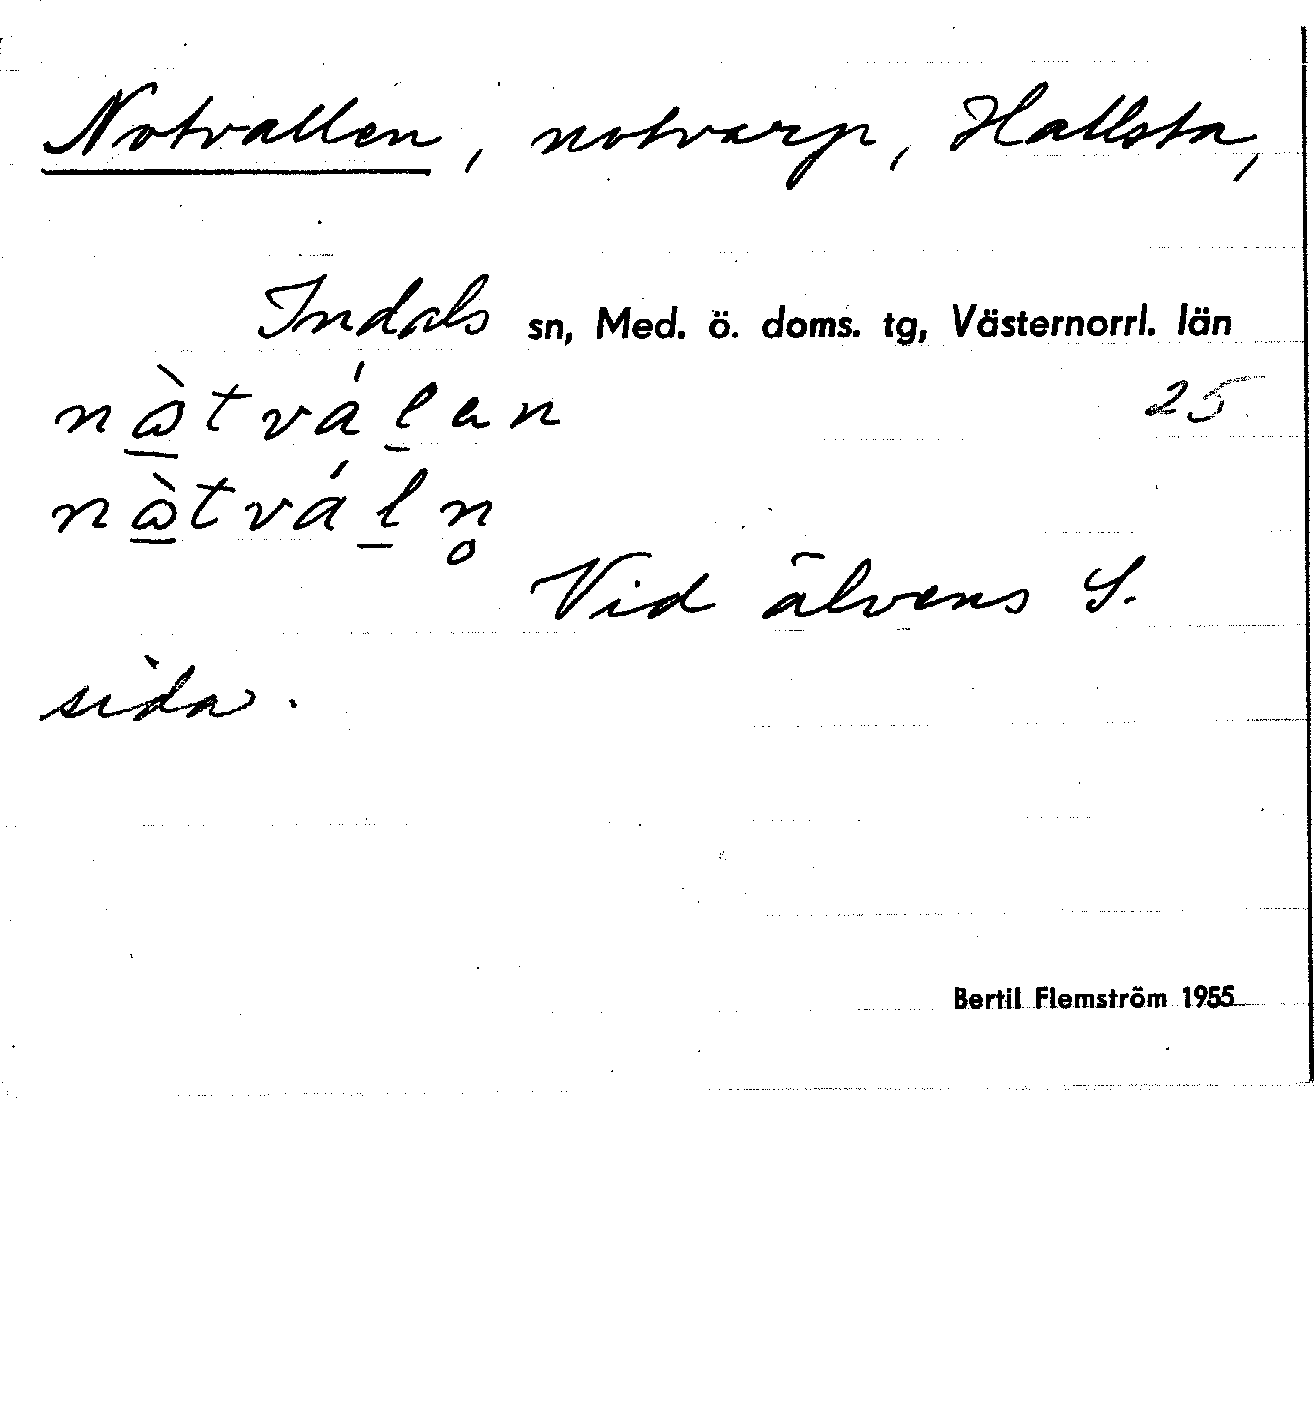 Notvallen, notvarp, Hallsta,
Indals sn, Med. ö. doms. tg, Västernorrl. län
nὼ̲tvál̲an 25
nὼ̲tvál̲n̥
Vid älvens S.
sida.
Bertil Flemström 1955